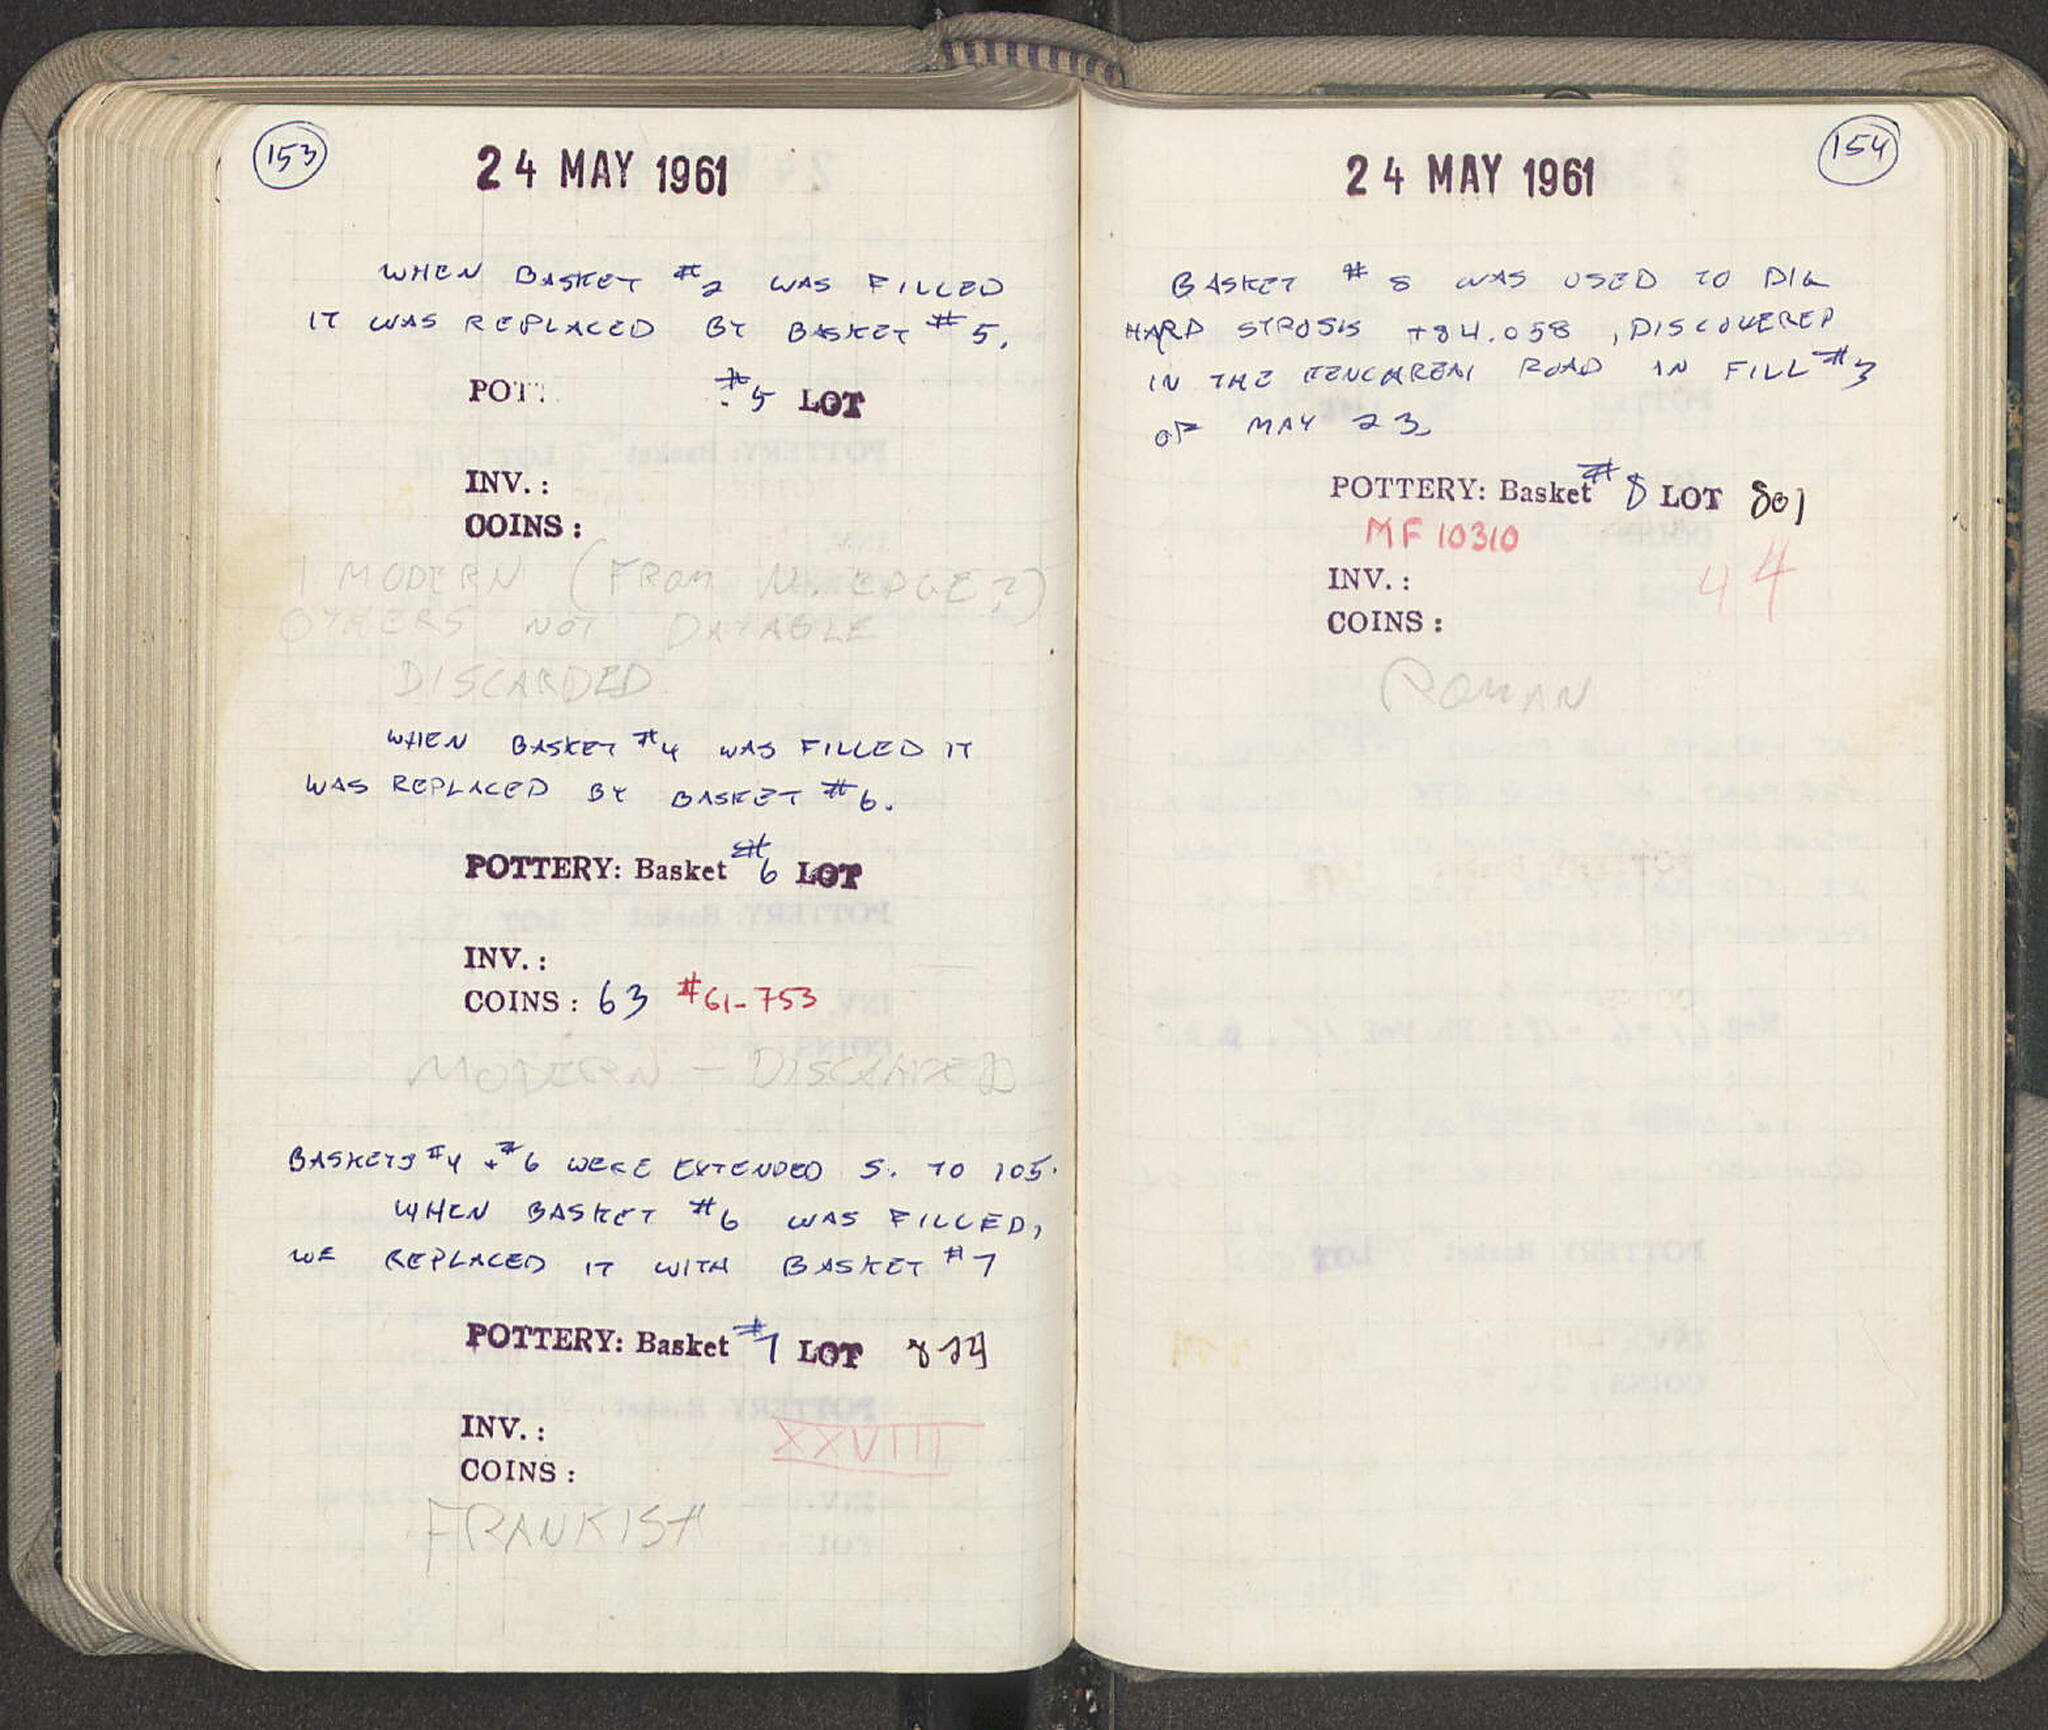 153
24 MAY 1961
WHEN BASKET #2 WAS FILLED
IT WAS REPLACED BY BASKET #5.
POT #5 LOT
INV.:
COINS:
1 MODERN (FROM N. EDGE?)
OTHERS NOT DATABLE
DISCARDED
WHEN BASKET #4 WAS FILLED IT
WAS REPLACED BY BASKET #6.
POTTERY: Basket #6 LOT
INV.:
COINS: 63 #61-753
MODERN — DISCARDED
BASKETS #4 + #6 WERE EXTENDED S. TO 105.
WHEN BASKET #6 WAS FILLED,
WE REPLACED IT WITH BASKET #7
POTTERY: Basket #7 LOT
INV.:
XXVIII
COINS:
FRANKISH
154
24 MAY 1961
BASKET #8 WAS USED TO DIG
HARD STROSIS +84.058, DISCOVERED
IN THE ROAD IN FILL #3
OF MAY 23.
POTTERY: Basket #8 LOT 801
MF 10310
INV.: 44
COINS:
ROMAN